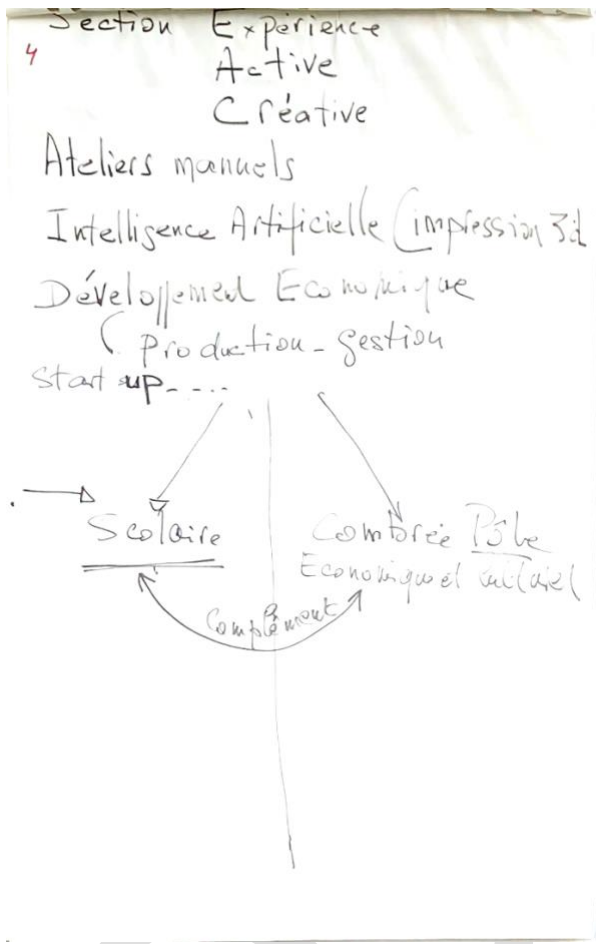 Section Expérience
4
Active
Créative
Ateliers manuels
Intelligence Artificielle (impression 3d
Développement Economique
( Production - gestion
Start up - - . .
Scolaire
Combrée Pôle
Economique et culturel
Complément